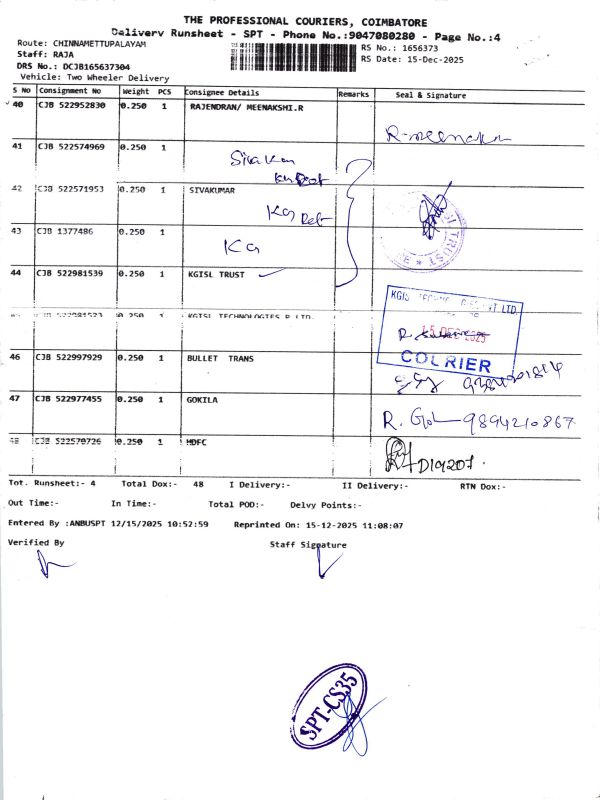 THE PROFESSIONAL COURIERS, COIMBATORE
Delivery Runsheet - SPT - Phone No.:9047080280 - Page No.:4
Route: CHINNAMETTUPALAYAM RS No.: 1656373
Staff: RAJA RS Date: 15-Dec-2025
DRS No.: DCJB165637304
Vehicle: Two Wheeler Delivery
S No Consignment No Weight PCS Consignee Details Remarks Seal & Signature
40 CJB 522952830 0.250 1 RAJENDRAN/ MEENAKSHI.R
R-meenakshi
41 CJB 522574969 0.250 1
42 CJB 522571953 0.250 1 SIVAKUMAR
43 CJB 1377486 0.250 1
44 CJB 522981539 0.250 1 KGISL TRUST
45 CJB 522981523 0.250 1 KGISL TECHNOLOGIES P LTD.
15 DEC 2025
COURIER
46 CJB 522997929 0.250 1 BULLET TRANS
47 CJB 522977455 0.250 1 GOKILA
R. Gol 9894210867
48 CJB 522570726 0.250 1 HDFC
D19207.
Tot. Runsheet:- 4 Total Dox:- 48 I Delivery:- II Delivery:- RTN Dox:-
Out Time:- In Time:- Total POD:- Delvy Points:-
Entered By :ANBUSPT 12/15/2025 10:52:59 Reprinted On: 15-12-2025 11:08:07
Verified By Staff Signature
SPT-CS35